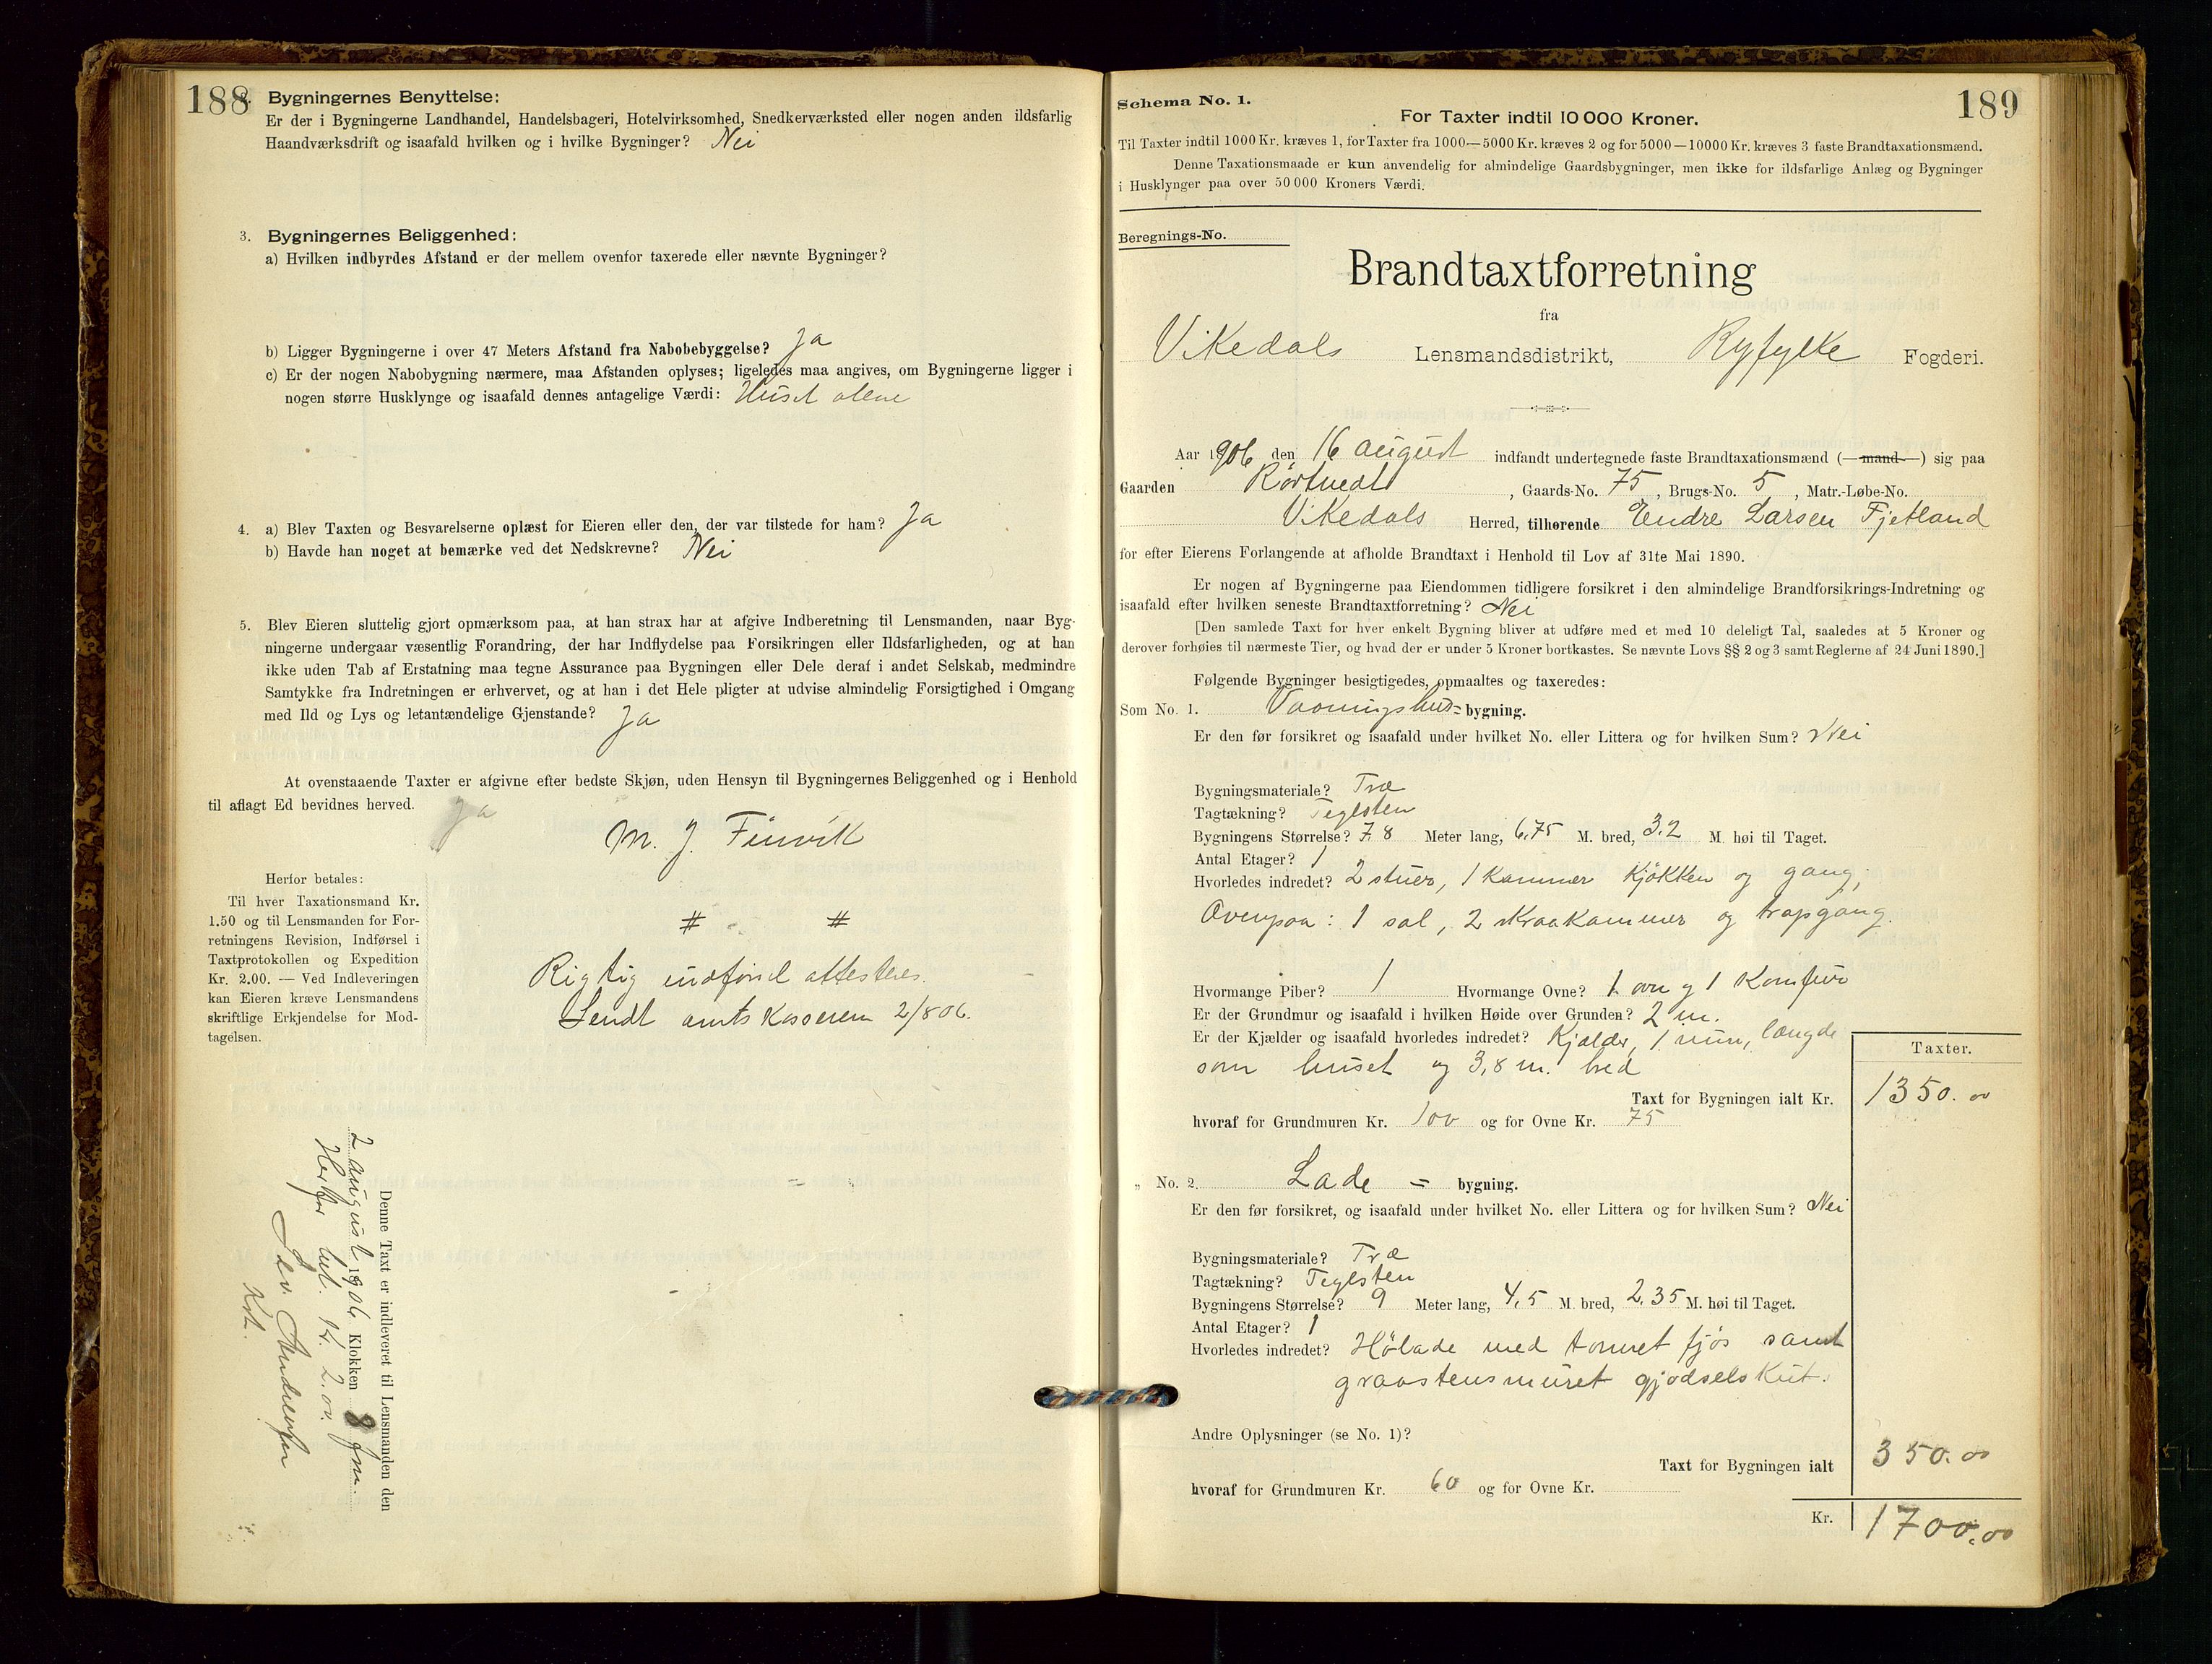 188
2. Bygningernes Benyttelse:
Er der i Bygningerne Landhandel, Handelsbageri, Hotelvirksomhed, Snedkerværksted eller nogen anden ildsfarlig
Haandværksdrift og isaafald hvilken og i hvilke Bygninger? Nei
3. Bygningernes Beliggenhed:
a) Hvilken indbyrdes Afstand er der mellem ovenfor taxerede eller nævnte Bygninger?
b) Ligger Bygningerne i over 47 Meters Afstand fra Nabobebyggelse? Ja
c) Er der nogen Nabobygning nærmere, maa Afstanden oplyses; ligeledes maa angives, om Bygningerne ligger i
nogen større Husklynge og isaafald dennes antagelige Værdi: Huset alene
4. a) Blev Taxten og Besvarelserne oplæst for Eieren eller den, der var tilstede for ham? Ja
b) Havde han noget at bemærke ved det Nedskrevne? Nei
5. Blev Eieren sluttelig gjort opmærksom paa, at han strax har at afgive Indberetning til Lensmanden, naar Byg-
ningerne undergaar væsentlig Forandring, der har Indflydelse paa Forsikringen eller Ildsfarligheden, og at han
ikke uden Tab af Erstatning maa tegne Assurance paa Bygningen eller Dele deraf i andet Selskab, medmindre
Samtykke fra Indretningen er erhvervet, og at han i det Hele pligter at udvise almindelig Forsigtighed i Omgang
med Ild og Lys og letantændelige Gjenstande? Ja
At ovenstaaende Taxter er afgivne efter bedste Skjøn, uden Hensyn til Bygningernes Beliggenhed og i Henhold
til aflagt Ed bevidnes herved. Ja
M. J. Finvik
# #
Herfor betales:
Til hver Taxationsmand Kr.
1.50 og til Lensmanden for For-
retningens Revision, Indførsel i
Taxtprotokollen og Expedition
Kr. 2.00. — Ved Indleveringen
kan Eieren kræve Lensmandens
skriftlige Erkjendelse for Mod-
tagelsen.
Rigtig indført attesteres.
Sendt amtskasseren 2/8 06.
Denne Taxt er indleveret til Lensmanden den
2 august 1906 Klokken 8 fm.
Herfor bet. Kr. 2.00.
Andersen
189
Schema No. 1.
For Taxter indtil 10 000 Kroner.
Til Taxter indtil 1000 Kr. kræves 1, for Taxter fra 1000—5000 Kr. kræves 2 og for 5000—10000 Kr. kræves 3 faste Brandtaxationsmænd.
Denne Taxationsmaade er kun anvendelig for almindelige Gaardsbygninger, men ikke for ildsfarlige Anlæg og Bygninger
i Husklynger paa over 50 000 Kroners Værdi.
Beregnings-No.
Brandtaxtforretning
fra
Vikedals Lensmandsdistrikt, Ryfylke Fogderi.
Aar 1906 den 16 august indfandt undertegnede faste Brandtaxationsmænd (—mand—) sig paa
Gaarden Rörtvedt, Gaards-No. 75, Brugs-No. 5, Matr.-Løbe-No.
Vikedals Herred, tilhørende Endre Larsen Fjetland
for efter Eierens Forlangende at afholde Brandtaxt i Henhold til Lov af 31te Mai 1890.
Er nogen af Bygningerne paa Eiendommen tidligere forsikret i den almindelige Brandforsikrings-Indretning og
isaafald efter hvilken seneste Brandtaxtforretning? Nei
[Den samlede Taxt for hver enkelt Bygning bliver at udføre med et med 10 deleligt Tal, saaledes at 5 Kroner og
derover forhøies til nærmeste Tier, og hvad der er under 5 Kroner bortkastes. Se nævnte Lovs §§ 2 og 3 samt Reglerne af 24 Juni 1890.]
Følgende Bygninger besigtigedes, opmaaltes og taxeredes:
Som No. 1. Vaaningshus= bygning.
Er den før forsikret og isaafald under hvilket No. eller Littera og for hvilken Sum? Nei
Bygningsmateriale? Træ
Tagtækning? Teglsten
Bygningens Størrelse? 7.8 Meter lang, 6,75 M. bred, 3,2 M. høi til Taget.
Antal Etager? 1
Hvorledes indredet? 2 stuer, 1 kammer kjökken og gang,
Ovenpaa: 1 sal, 2 skraakammer og trapgang.
Hvormange Piber? 1 Hvormange Ovne? 1 ovn og 1 komfur
Er der Grundmur og isaafald i hvilken Høide over Grunden? 2 m.
Er der Kjælder og isaafald hvorledes indredet? Kjælder, 1 rum, længde
som huset og 3,8 m. bred
Taxter.
Taxt for Bygningen ialt Kr. 1350.00
hvoraf for Grundmuren Kr. 100 og for Ovne Kr. 75
„ No. 2. Lade = bygning.
Er den før forsikret, og isaafald under hvilket No. eller Littera og for hvilken Sum? Nei
Bygningsmateriale? Træ
Tagtækning? Teglsten
Bygningens Størrelse? 9 Meter lang, 4,5 M. bred, 2,35 M. høi til Taget.
Antal Etager? 1
Hvorledes indredet? Hölade med tömret fjös samt
graastensmuret gjödselskut.
Andre Oplysninger (se No. 1)?
Taxt for Bygningen ialt 350.00
hvoraf for Grundmuren Kr. 60 og for Ovne Kr.
Kr. 1700.00